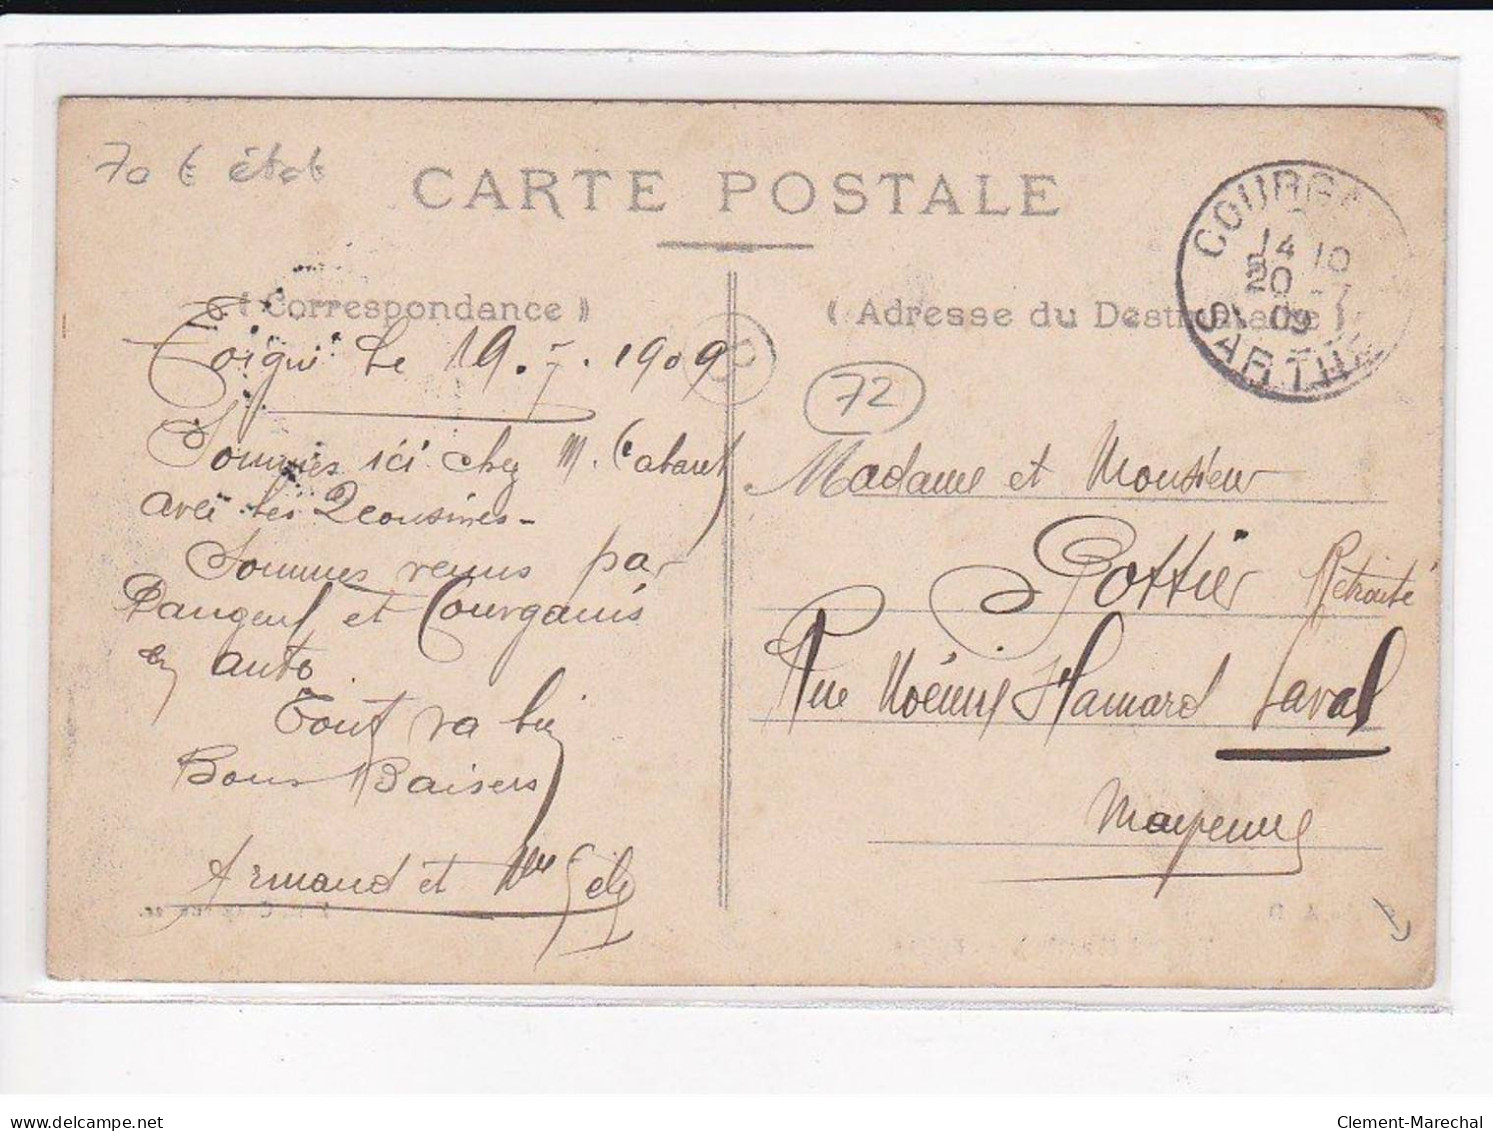 70 € état
CARTE POSTALE
COURGA
14 10
20 -7
09
SARTHE
( Correspondance )
( Adresse du Destinataire )
72
Torigné le 19. 7. 1909
Sommes ici chez M. Cabaret
avec les 2 cousines -
Sommes venus par
Dangeul et Courgains
en auto
Tout va bien
Bons Baisers
Armand et
Madame et Monsieur
Pottier Retraité
Rue Noémie Hamard Laval
Mayenne
delcampe.net
Clement-Marechal